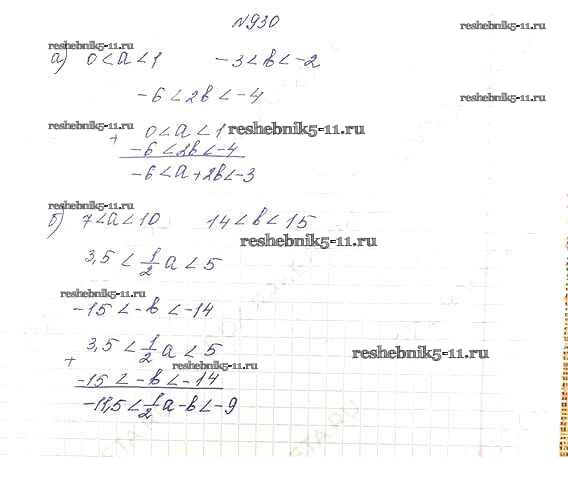 №930
reshebnik5-11.ru
reshebnik5-11.ru
а) 0<a<1 -3<b<-2
-6<2b<-4
reshebnik5-11.ru
reshebnik5-11.ru
0<a<1 reshebnik5-11.ru
+
-6<2b<-4
-6<a+2b<-3
reshebnik5-11.ru
б) 7<a<10 14<b<15
reshebnik5-11.ru
3,5<1/2a<5
reshebnik5-11.ru
-15<-b<-14
3,5<1/2a<5
reshebnik5-11.ru
+
reshebnik5-11.ru
-15<-b<-14
-11,5<1/2a-b<-9